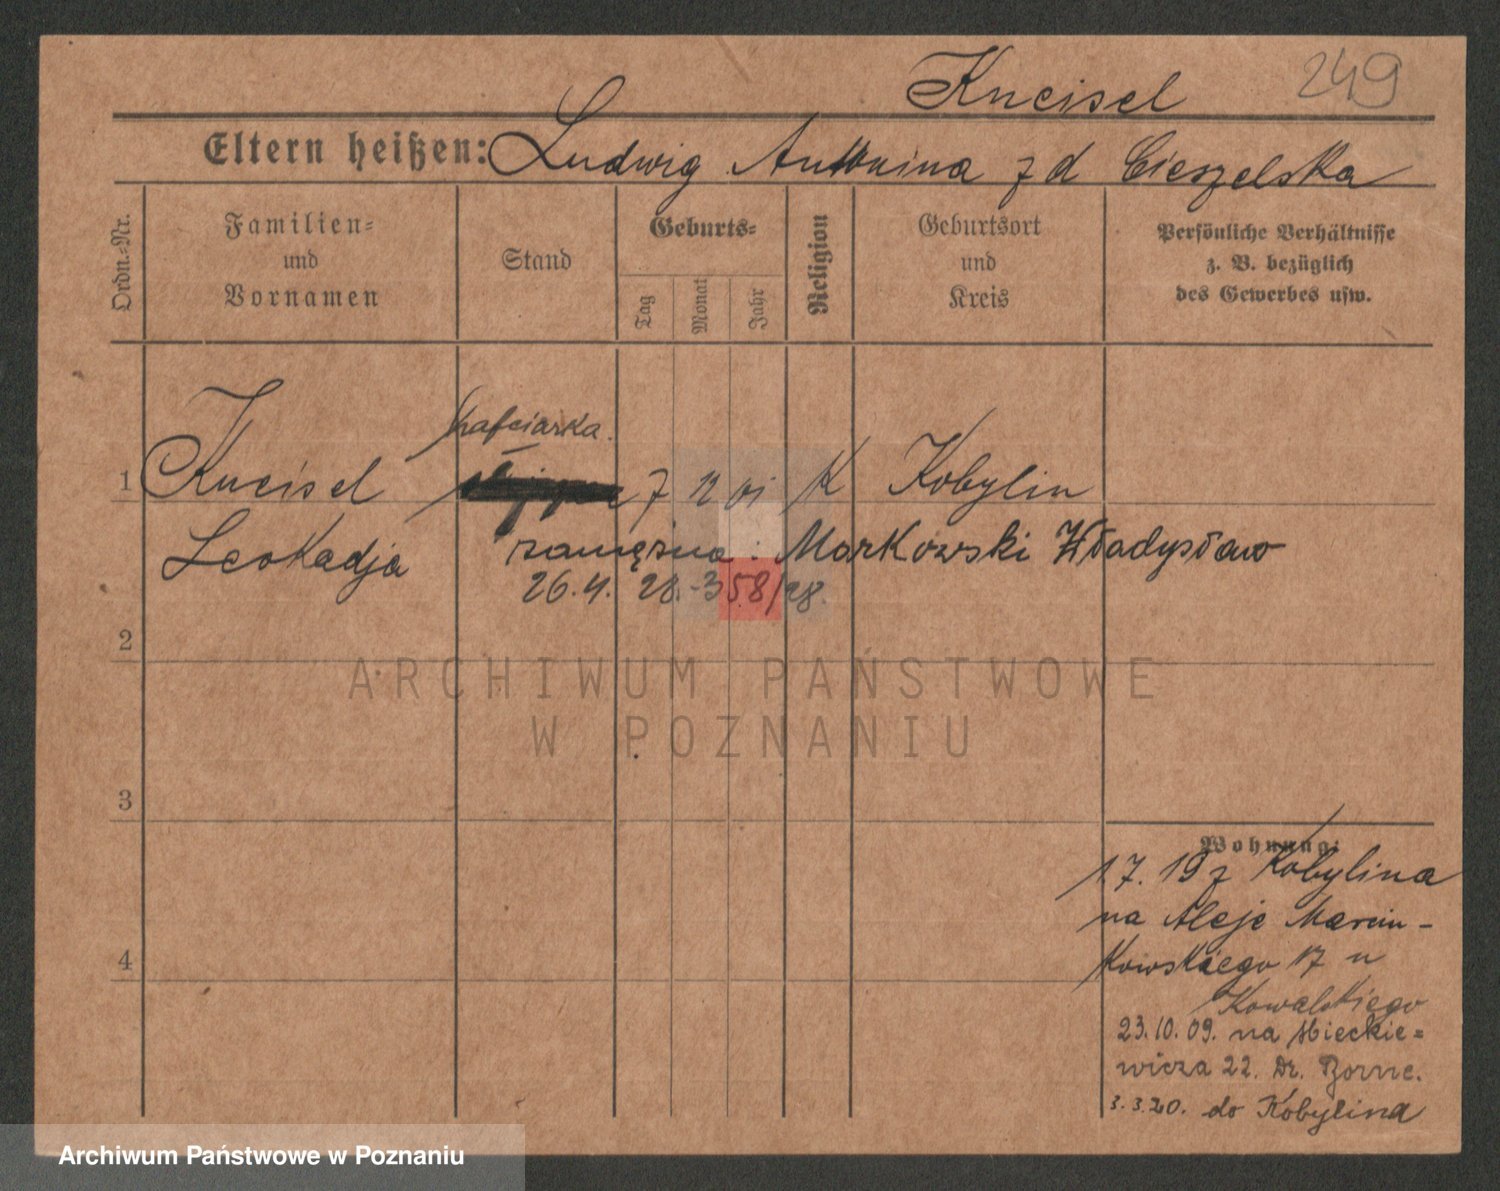 249
Kneisel
Eltern heißen: Ludwig Antonina z d Cieszelska
Ordn.-Nr.
Familien- und Vornamen
Stand
Geburts-
Tag
Monat
Jahr
Religion
Geburtsort und Kreis
Persönliche Verhältnisse z. B. bezüglich des Gewerbes usw.
hafciarka.
1 Kneisel 7 12 01 K Kobylin
Leokadja zamężna : Markowski Władysław
26.4. 28.-358/28.
2
ARCHIWUM PAŃSTWOWE
W POZNANIU
3
Wohnung:
1.7.19 z Kobylina
na Aleje Marcin-
4
kowskiego 17 u
Kowalskiego
23.10.09. na Mickie=
wicza 22. Dr.
3.3.20. do Kobylina
Archiwum Państwowe w Poznaniu